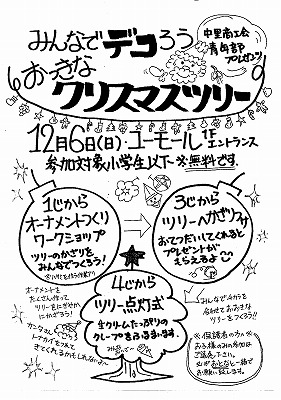 みんなでデコろう
中里商工会
青年部
プレゼンツ
おっきな
クリスマスツリー
12月6日(日)ユーモール1F
エントランス
参加対象小学生以下※無料です。
1じから
オーナメントづくり
ワークショップ
ツリーのかざりを
みんなでつくろう!
3じから
ツリーへかざりつけ
おてつだいしてくれると
プレゼントが
もらえるよ
オーナメントを
たくさん作って
ツリーをにぎやか
にかざろう!
4じから
ツリー点灯式
生クリームたっぷりの
クレープをふるまいます。
みんなでチカラを
合わせておおきな
ツリーをつくろう!!
サンタさん
トナカイをつれて
きてくれるかもしれないよ〜
※保護者の方へ※
お子様のみの参加は
ご遠慮下さい。
必ずおとなと一緒で
お願い致します。